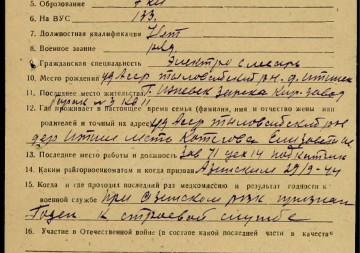 5. Образование 7 кл
6. На ВУС 133.
7. Должностная квалификация Нет
8. Военное звание ряд
9. Гражданская специальность Электро слесарь
10. Место рождения уд Асср р-н. д.
11. Последнее место жительства г. Ижевск Кир. завод
№ 3 кв 11
12. Где проживает в настоящее время семья (фамилия, имя и отчество жены или
родителей и точный их адрес) уд Асср р-н
дер мать Котегова
13. Последнее место работы и должность зав 71 цех 14
14. Каким райгорвоенкоматом и когда призван Азинским
15. Когда и где проходил последний раз медкомиссию и результат годности к
военной службе при Азинском рвк признан
Годен к строевой службе
16. Участие в Отечественной войне (в составе какой последней части в качестве